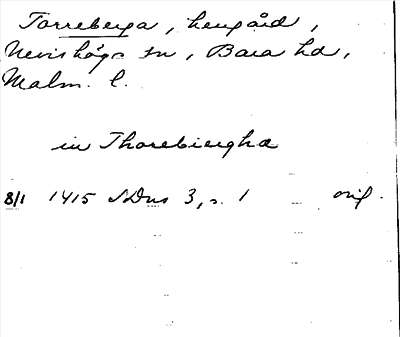 Torreberga, herrgård,
Nevishögs sn, Bara hd,
Malm. l.
in Thorebiergha
8/1 1415 SDns 3, s. 1 orig.